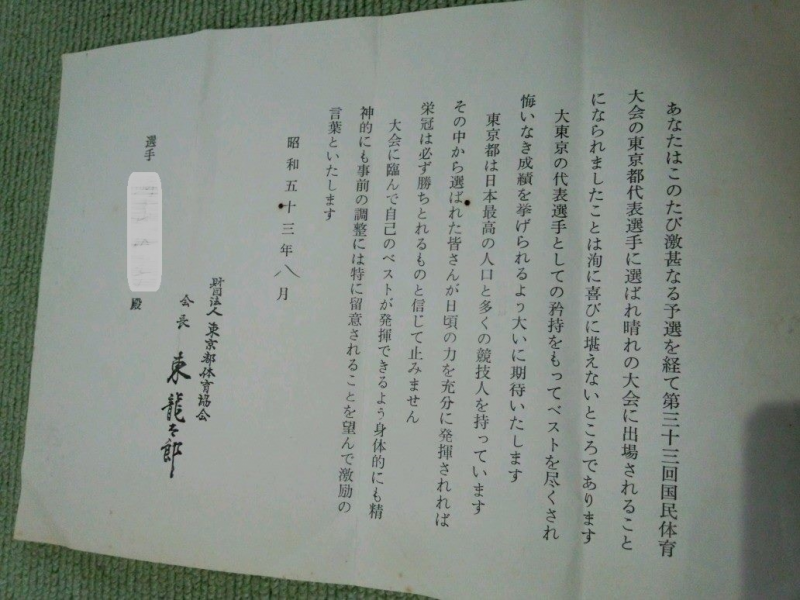 あなたはこのたび激甚なる予選を経て第三十三回国民体育
大会の東京都代表選手に選ばれ晴れの大会に出場されること
になられましたことは洵に喜びに堪えないところであります
大東京の代表選手としての矜持をもってベストを尽くされ
悔いなき成績を挙げられるよう大いに期待いたします
東京都は日本最高の人口と多くの競技人を持っています
その中から選ばれた皆さんが日頃の力を充分に発揮されれば
栄冠は必ず勝ちとれるものと信じて止みません
大会に臨んで自己のベストが発揮できるよう身体的にも精
神的にも事前の調整には特に留意されることを望んで激励の
言葉といたします
昭和五十三年八月
財団法人 東京都体育協会
会長 東龍太郎
選手 殿